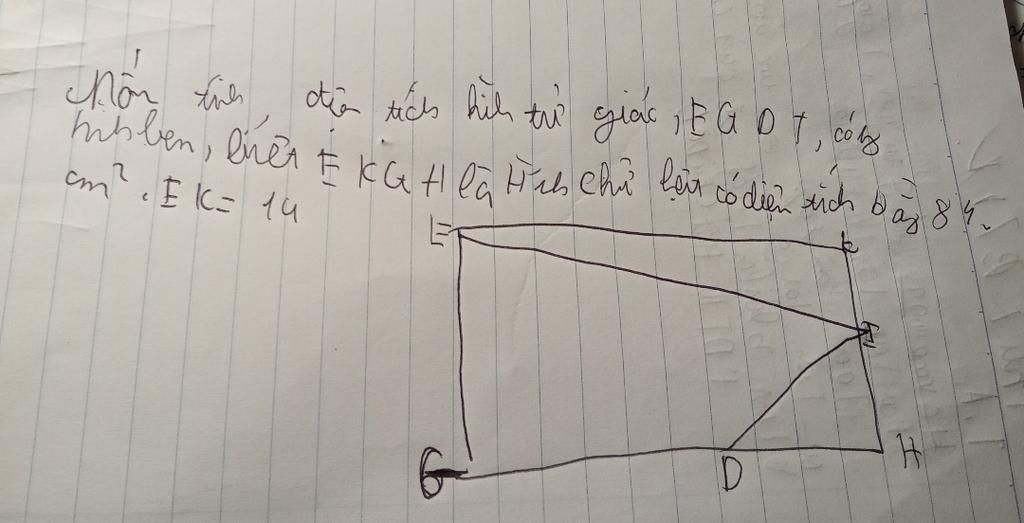 tính diện tích hình tứ giác, EGDI, có
hình bên, biết EKGH là Hình chữ có diện tích bằng 84
cm². EK = 14
E
K
I
G
D
H